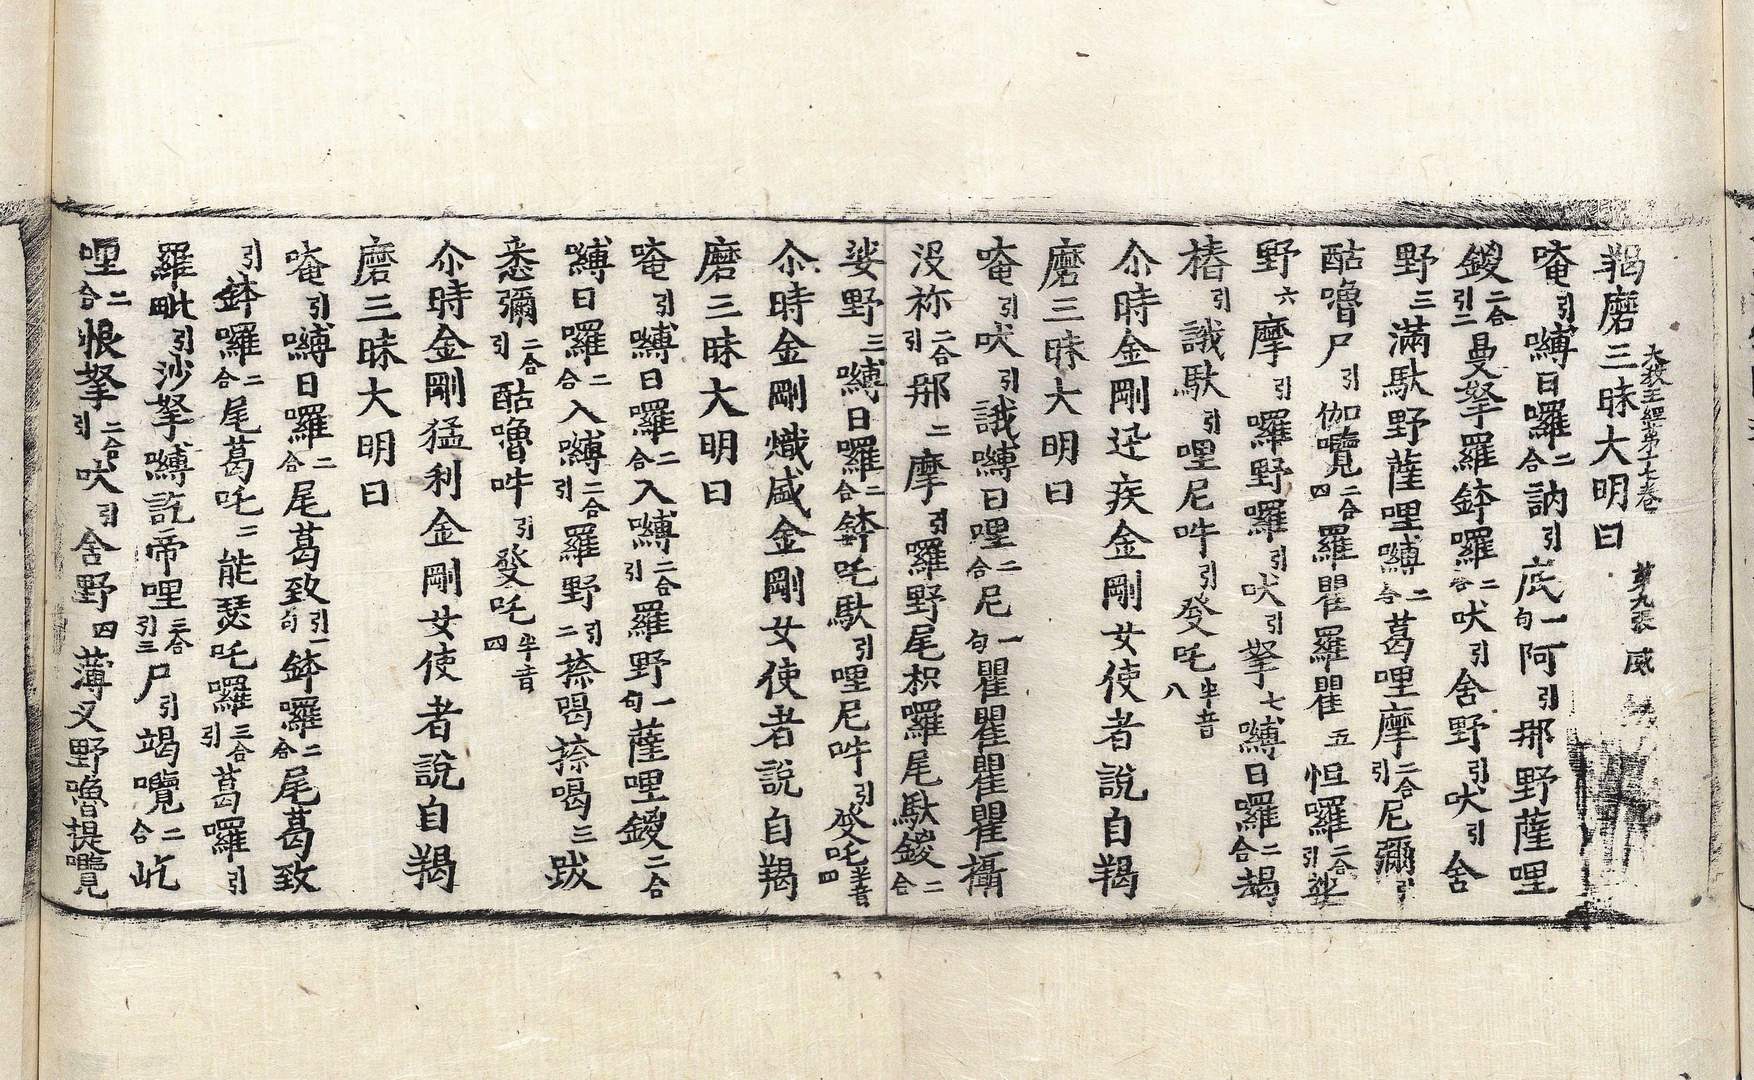 羯磨三昧大明曰
大教王經第十七卷 第九張 威
唵引嚩日囉二合訥引底一句阿引那野薩哩
鑁二合引二曼拏羅鉢囉二合吠引舍野引吠引舍
野三滿馱野薩哩嚩二合葛哩摩二合引尼彌引
酤嚕尸引伽囕二合四羅瞿羅瞿五怛囉二合引娑
野六摩引囉野囉引吠引拏七嚩日囉二合朅
椿引誐馱引哩尼吽引發吒半音八
尒時金剛迅疾金剛女使者說自羯
磨三昧大明曰
唵引吠引誐嚩日哩二合尼一句瞿瞿瞿瞿攝
沒祢二合引那二摩引囉野尾枳囉尾馱鑁二合
娑野三嚩日囉二合鉢吒馱引哩尼吽引發吒半音四
尒時金剛熾盛金剛女使者說自羯
磨三昧大明曰
唵引嚩日囉二合入嚩二合引羅野一句薩哩鑁二合
嚩日囉二合入嚩二合引羅野引二捺喝捺喝三跋
悉彌二合引酤嚕吽引發吒半音四
尒時金剛猛利金剛女使者說自羯
磨三昧大明曰
唵引嚩日囉二合尾葛致引一句鉢囉二合尾葛致
引鉢囉二合尾葛吒二能瑟吒囉三合引葛羅引
羅毗引沙拏嚩訖帝哩三合引三尸引竭囕二合屹
哩二合恨拏二合引吠引舍野四薄叉野嚕提囕